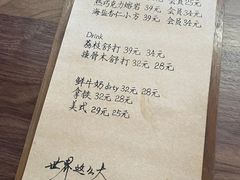 热巧克力熔岩 39元 会员34元
海盐杏仁小方 39元 会员34元
Drink
荔枝舒打 39元 34元
接骨木舒打 32元 28元
鲜牛奶dirty 32元 28元
拿铁 32元 28元
美式 29元 25元
世界这么大